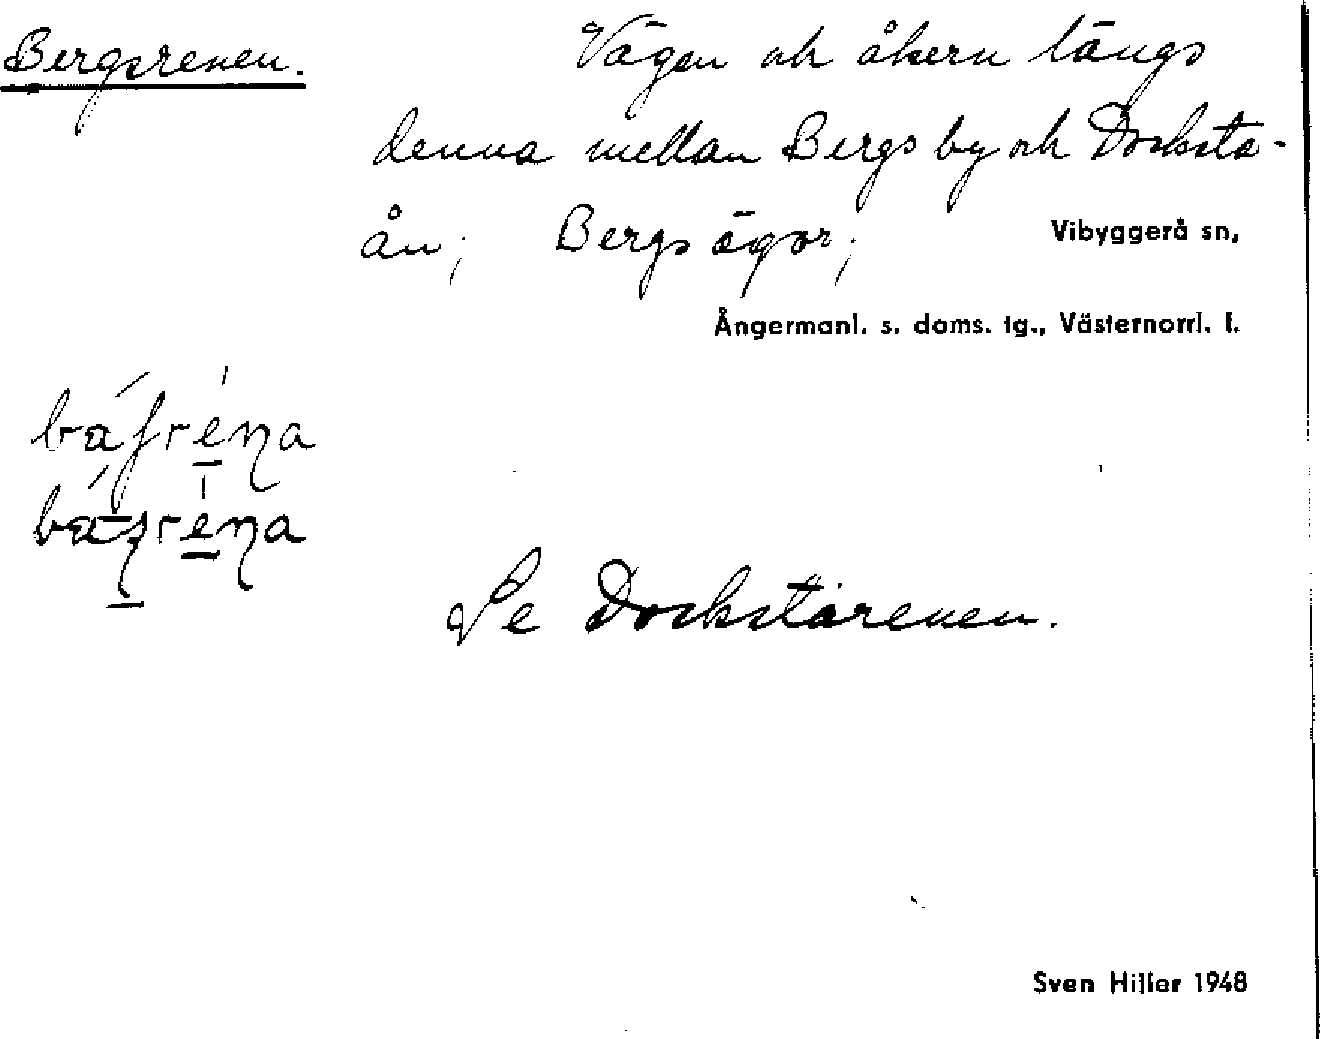 Bergsrenen. Vägen och åkern längs
denna mellan Bergs by och Docksta-
ån; Bergs ägor; Vibyggerå sn,
Ångermanl. s. doms. tg., Västernorrl. l.
Se Dockstarenen.
Sven Hiller 1948